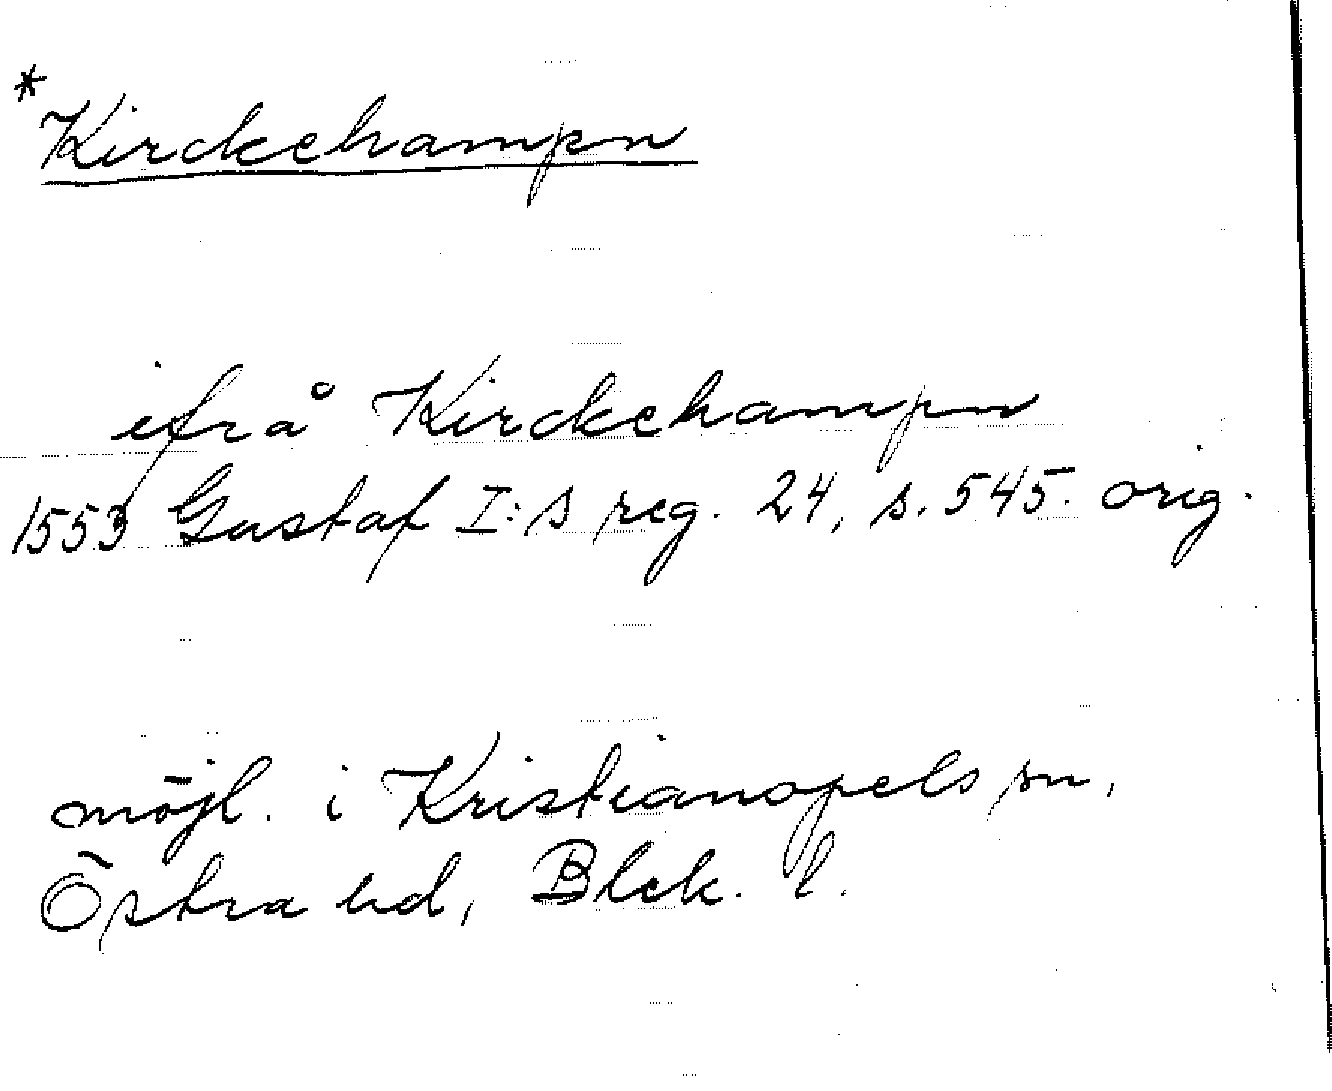 *
Kirckehampn
ifrå Kirckehampn
1553 Gustaf I:s reg. 24, s. 545. orig.
möjl. i Kristianopels sn,
Östra hd, Blek. l.